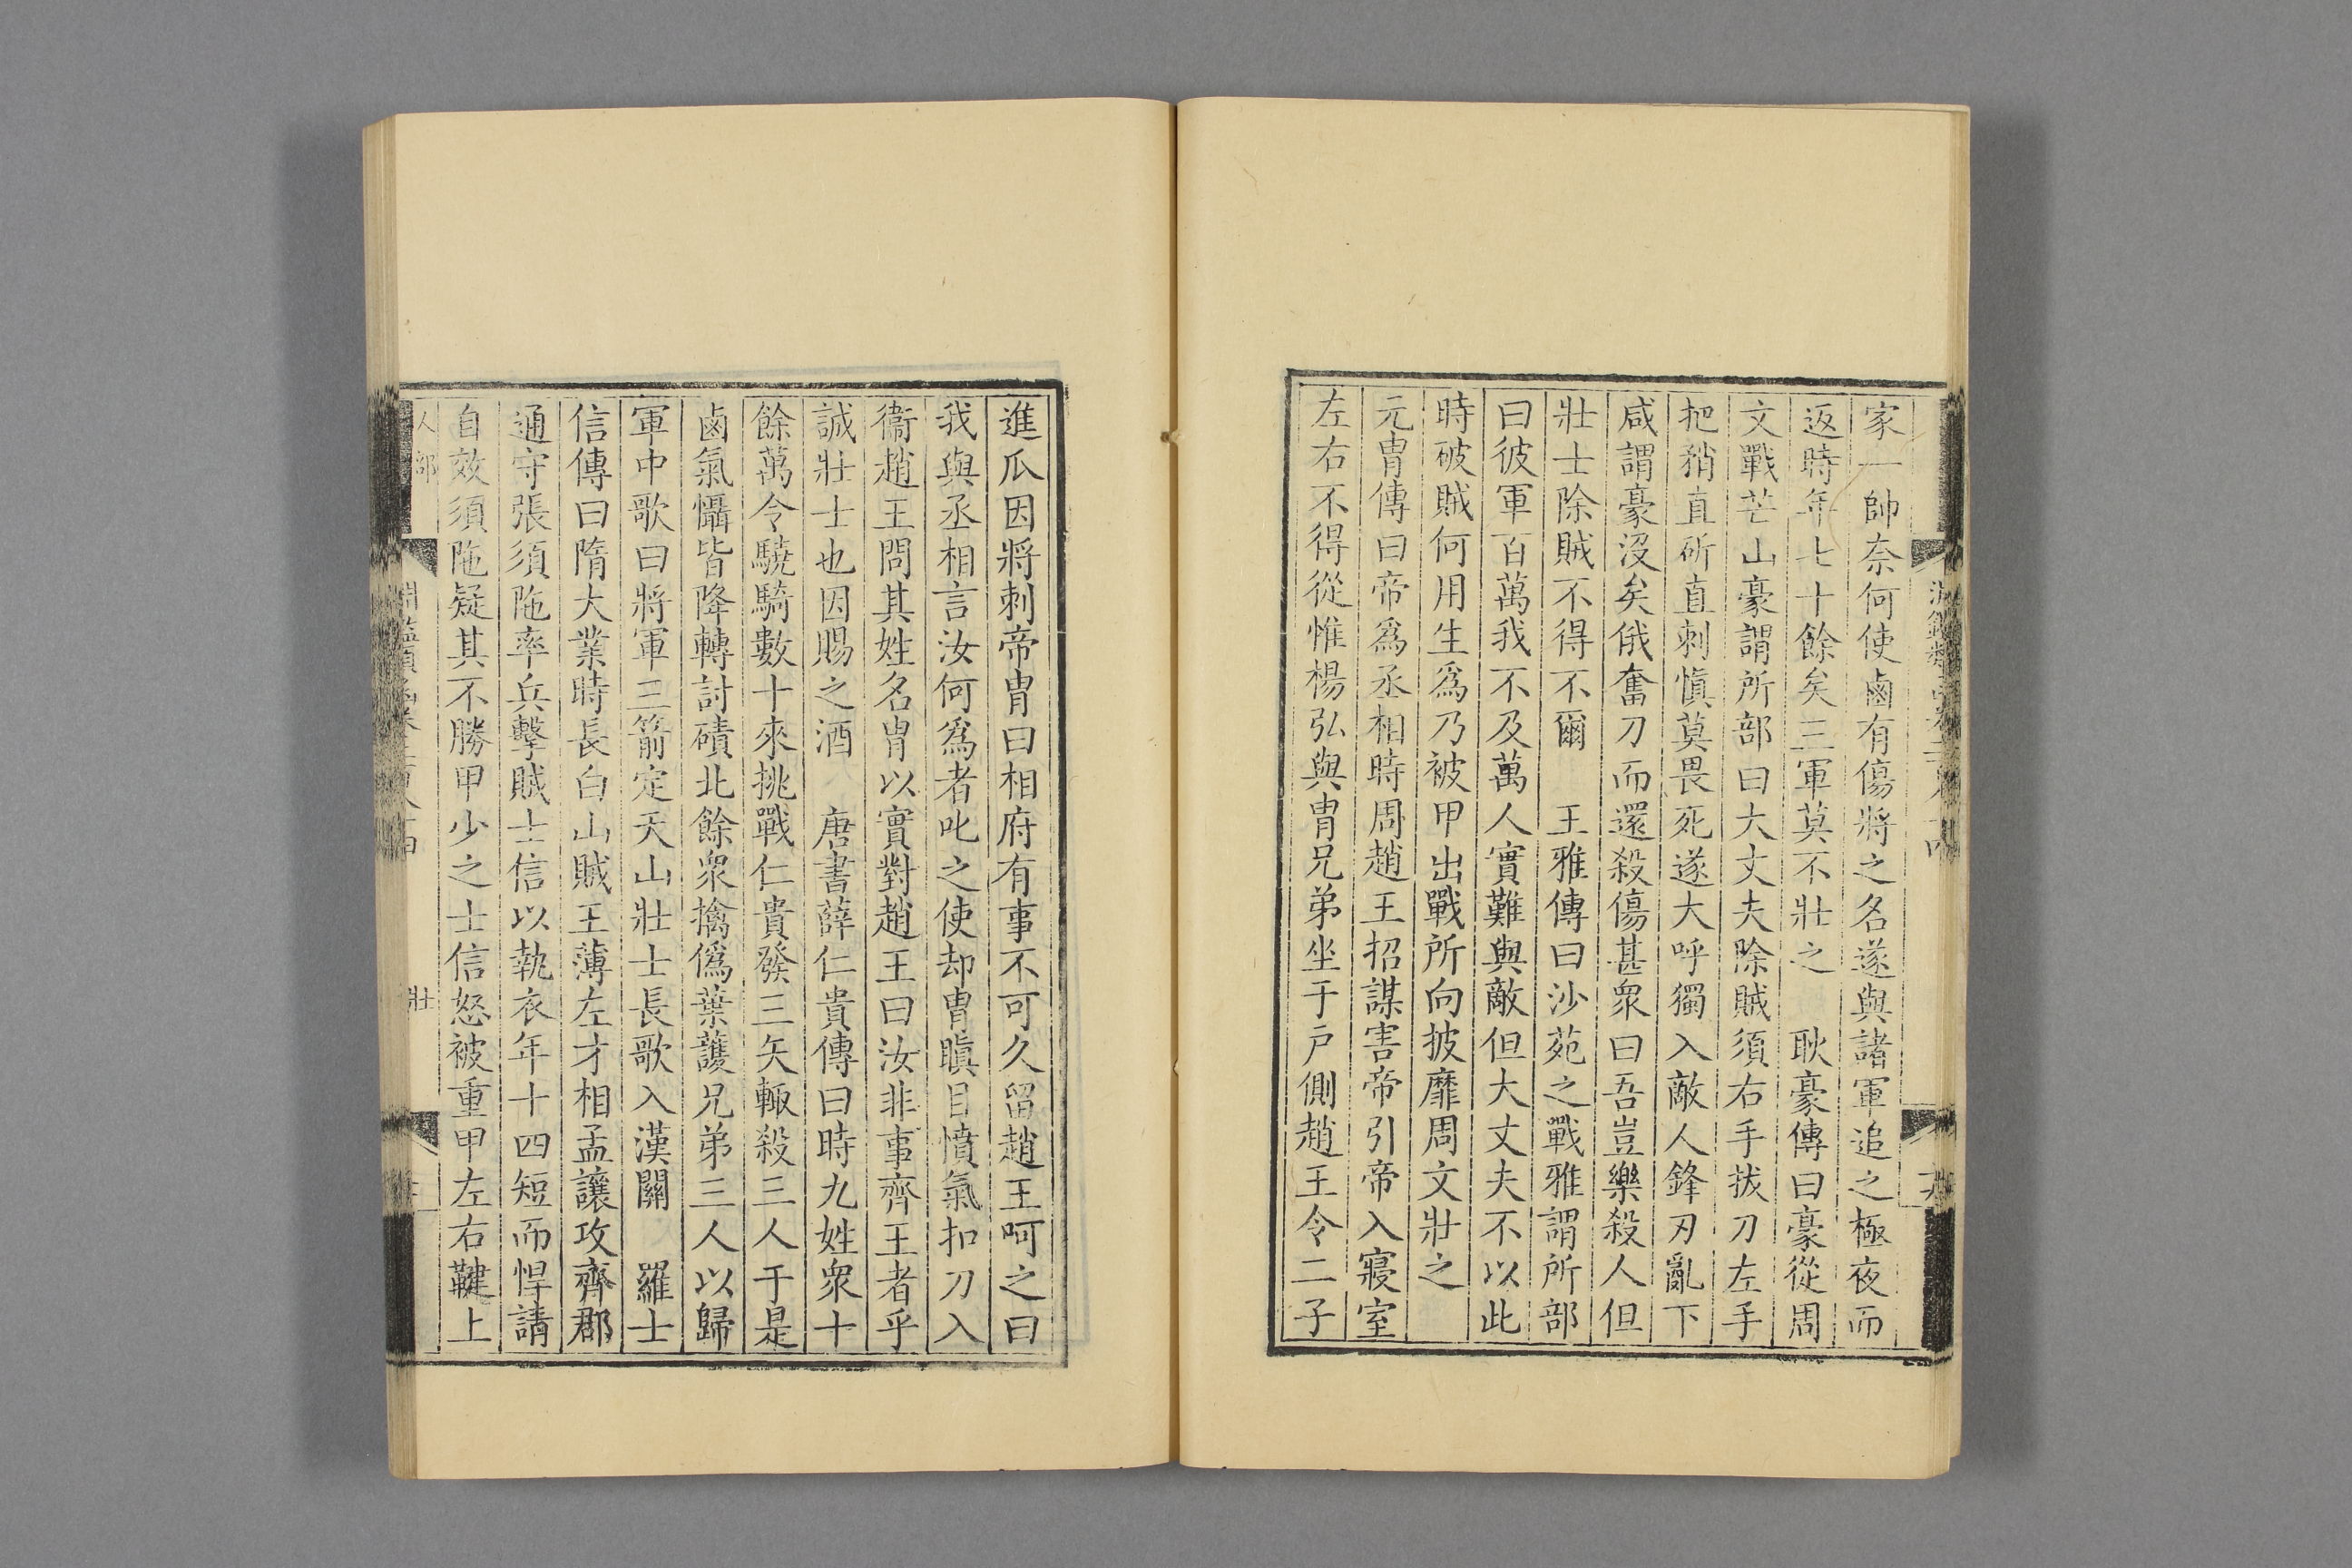 家一帥奈何使鹵有傷將之名遂與諸軍追之極夜而
返時年七十餘矣三軍莫不壯之　耿豪傳曰豪從周
文戰芒山豪謂所部曰大丈夫除賊須右手拔刀左手
把矟直斫直刺愼莫畏死遂大呼獨入敵人鋒刃亂下
咸謂豪沒矣俄奮刀而還殺傷甚衆曰吾豈樂殺人但
壯士除賊不得不爾　王雅傳曰沙苑之戰雅謂所部
曰彼軍百萬我不及萬人實難與敵但大丈夫不以此
時破賊何用生爲乃被甲出戰所向披靡周文壯之
元冑傳曰帝爲丞相時周趙王招謀害帝引帝入寢室
左右不得從惟楊弘與冑兄弟坐于戸側趙王令二子
進瓜因將刺帝冑曰相府有事不可久留趙王呵之曰
我與丞相言汝何爲者叱之使却冑瞋目憤氣扣刀入
衞趙王問其姓名冑以實對趙王曰汝非事齊王者乎
誠壯士也因賜之酒　唐書薛仁貴傳曰時九姓衆十
餘萬令驍騎數十來挑戰仁貴發三矢輒殺三人于是
鹵氣懾皆降轉討磧北餘衆擒僞葉護兄弟三人以歸
軍中歌曰將軍三箭定天山壯士長歌入漢關　羅士
信傳曰隋大業時長白山賊王薄左才相孟讓攻齊郡
通守張須陁率兵擊賊士信以執衣年十四短而悍請
自效須陁疑其不勝甲少之士信怒被重甲左右鞬上
人部
壯